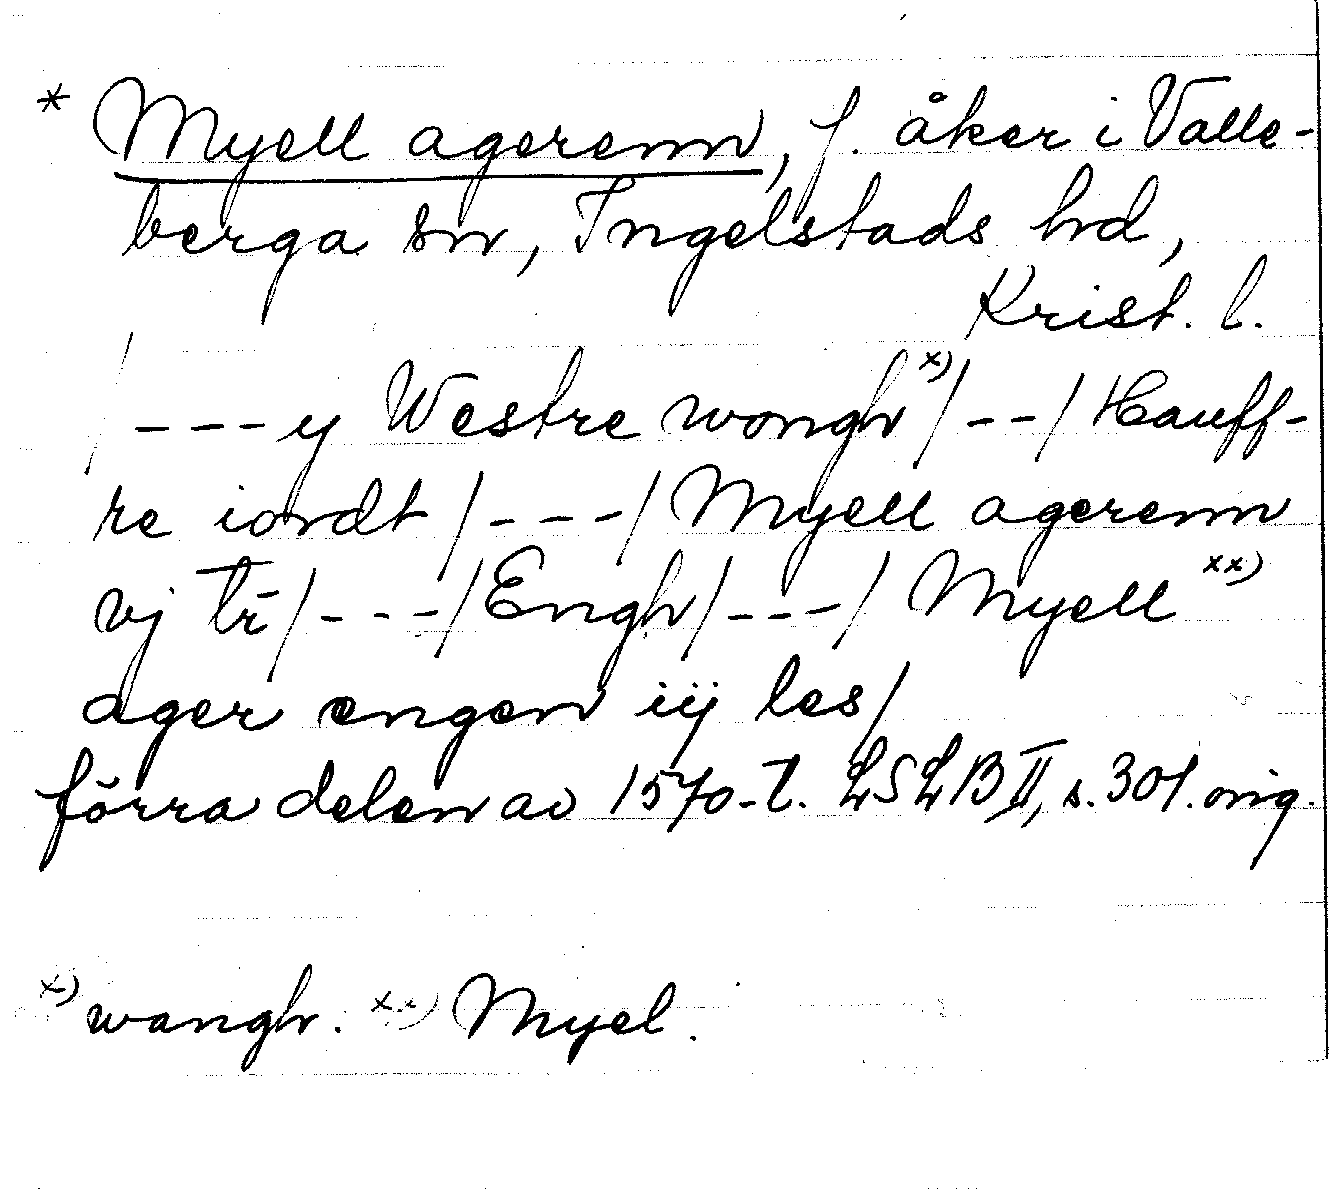 * Myell agerenn, f. åker i Valle-
berga sn, Ingelstads hd,
Krist. l.
/ - - - y Westre wongh x) / - - / Hauff-
re iordt / - - - / Myell agerenn
vj tr̄ / - - - / Engh / - - - / Myell xx)
ager engen iij les /
förra delen av 1570-t. LSLB II, s. 301. orig.
x) wangh. xx) Myel.